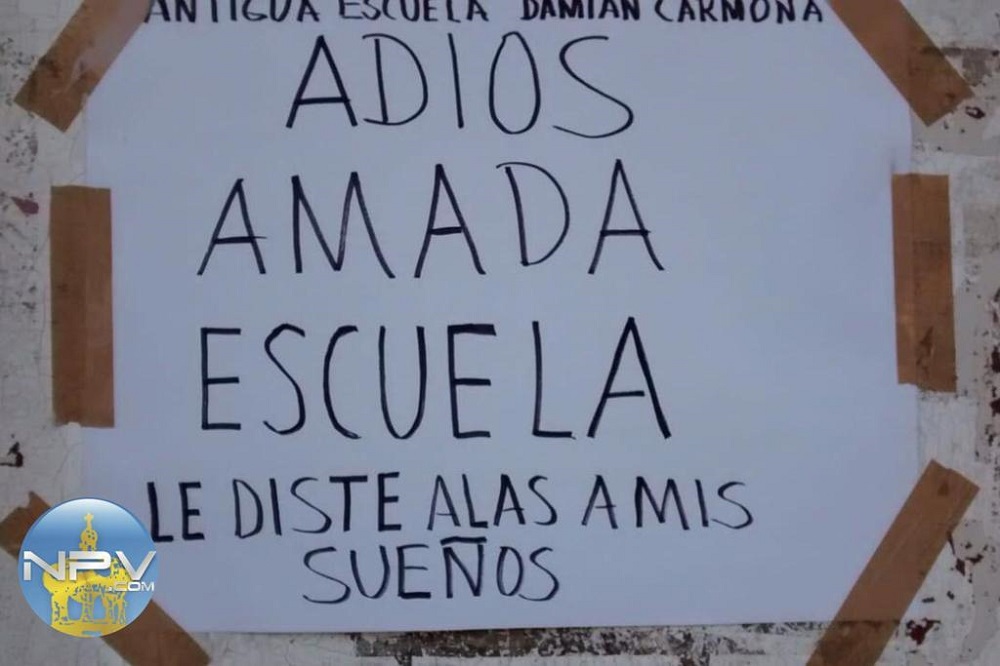 ANTIGUA ESCUELA DAMIAN CARMONA
ADIOS
AMADA
ESCUELA
LE DISTE ALAS AMIS
SUEÑOS
NPV
.COM